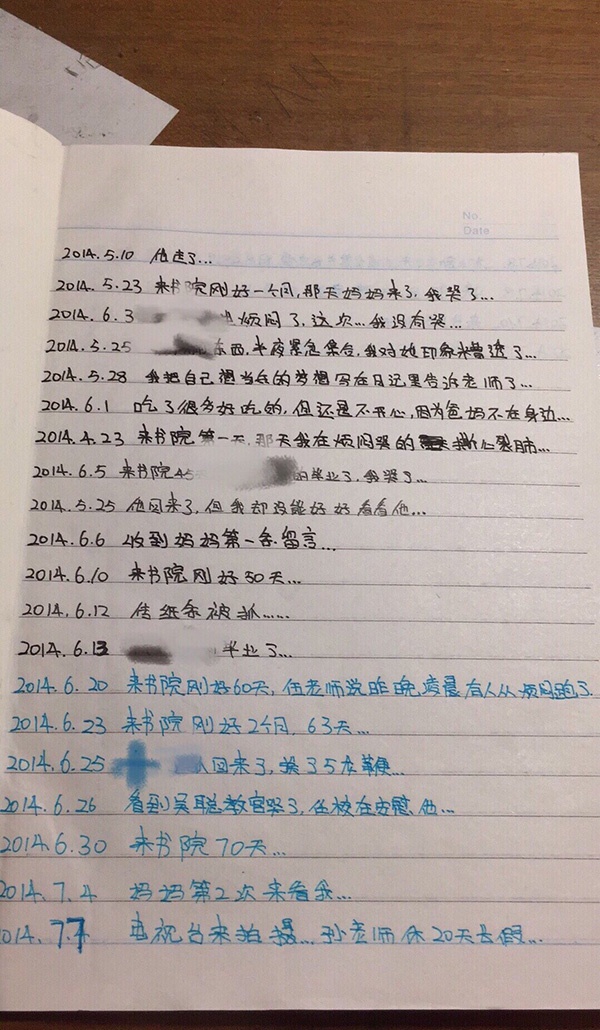 No.
Date
2014.5.10 他走了...
2014.5.23 来书院刚好一个月,那天妈妈来了,我哭了...
2014.6.3 烦闷了,这次...我没有哭...
2014.5.25 东西,半夜紧急集合,我对她印象糟透了...
2014.5.28 我把自己想当兵的梦想写在日记里告诉老师了...
2014.6.1 吃了很多好吃的,但还是不开心,因为爸妈不在身边...
2014.4.23 来书院第一天,那天我在烦闷哭的撕心裂肺...
2014.6.5 来书院45 毕业了,我哭了...
2014.5.25 他回来了,但我却没能好好看看他...
2014.6.6 收到妈妈第一条留言...
2014.6.10 来书院刚好50天...
2014.6.12 传纸条被抓......
2014.6.13 毕业了...
2014.6.20 来书院刚好60天,伍老师说昨晚凌晨有人从烦闷跑了.
2014.6.23 来书院刚好2个月,63天...
2014.6.25 回来了,挨了5龙鞭...
2014.6.26 看到吴聪教官哭了,任被在安慰他...
2014.6.30 来书院70天...
2014.7.4 妈妈第2次来看我...
014.7.7 电视台来拍摄...孙老师休20天长假...